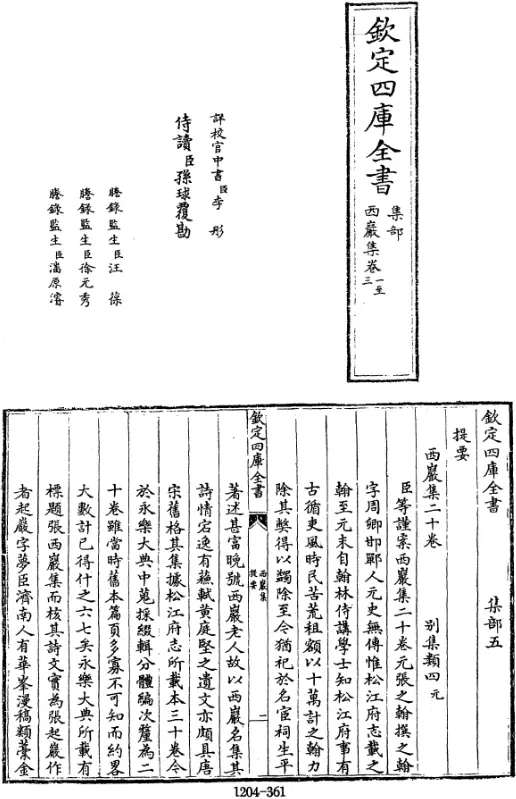 欽定四庫全書
集部
西巖集卷一至三
詳校官中書臣李彤
侍讀臣孫球覆勘
謄錄監生臣汪葆
謄錄監生臣徐元秀
謄錄監生臣潘原濬
欽定四庫全書 集部五
提要
西巖集二十卷 別集類四元
臣等謹案西巖集二十卷元張之翰撰之翰
字周卿邯鄲人元史無傳惟松江府志載之
翰至元末自翰林侍講學士知松江府事有
古循吏風時民苦荒租額以十萬計之翰力
除其弊得以蠲除至今猶祀於名宦祠生平
欽定四庫全書
西巖集
提要
一
著述甚富晚號西巖老人故以西巖名集其
詩清宕逸有蘇軾黃庭堅之遺文亦頗具唐
宋舊格其集據松江府志所載本三十卷今
於永樂大典中蒐採綴輯分體編次釐為二
十卷雖當時舊本篇頁多寡不可知而約畧
大數計已得什之六七矣永樂大典所載有
標題張西巖集而核其詩文實為張起巖作
者起巖字夢臣濟南人有華峯漫稿類藁金
1204-361